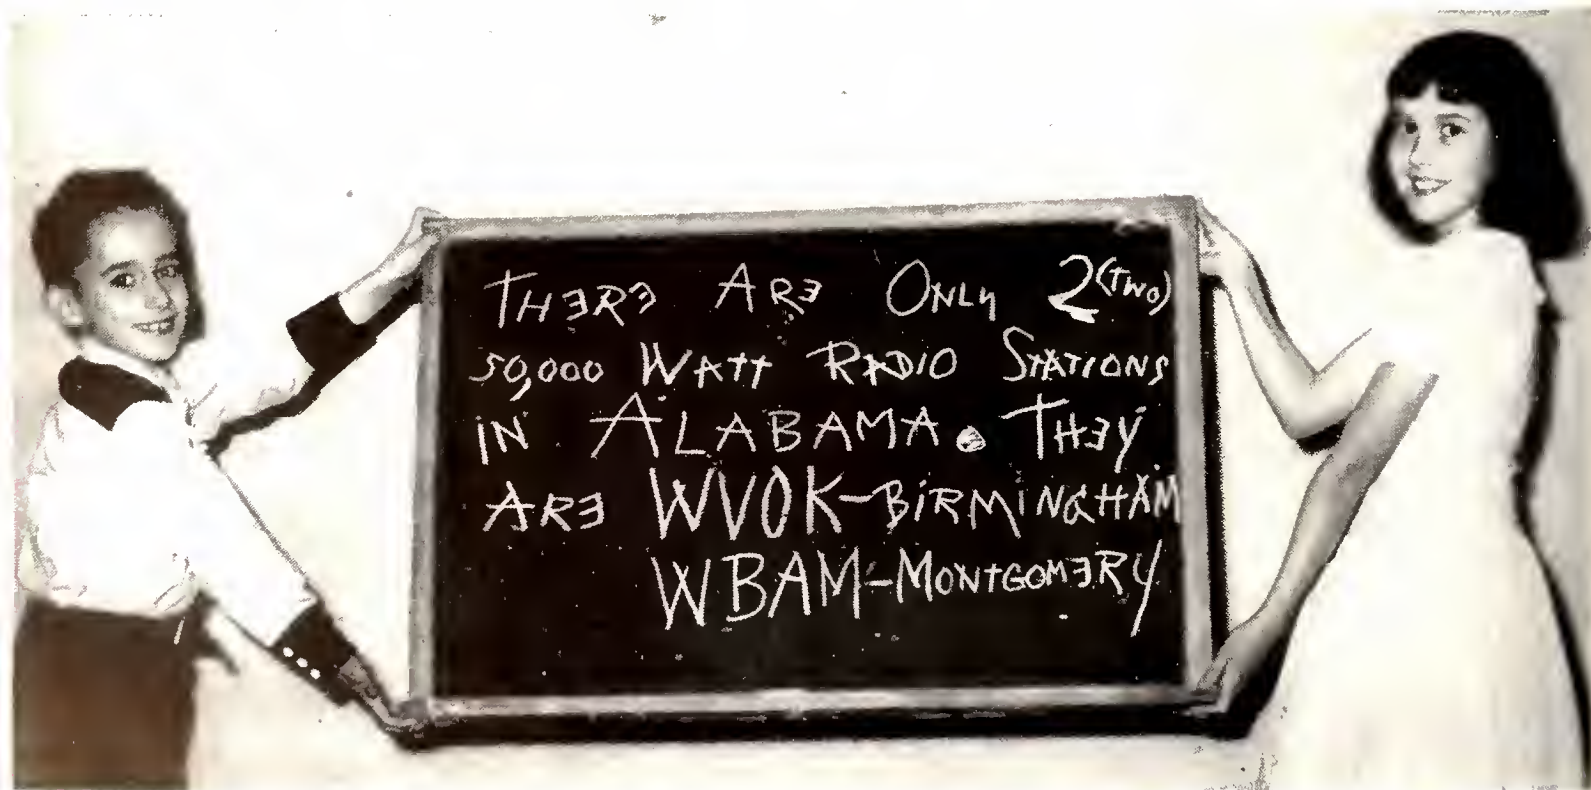 THERE ARE ONLY 2(TWO)
50,000 WATT RADIO STATIONS
iN ALABAMA. THEY
ARE WVOK-BiRMiNGHAM
WBAM-MONTGOMERY